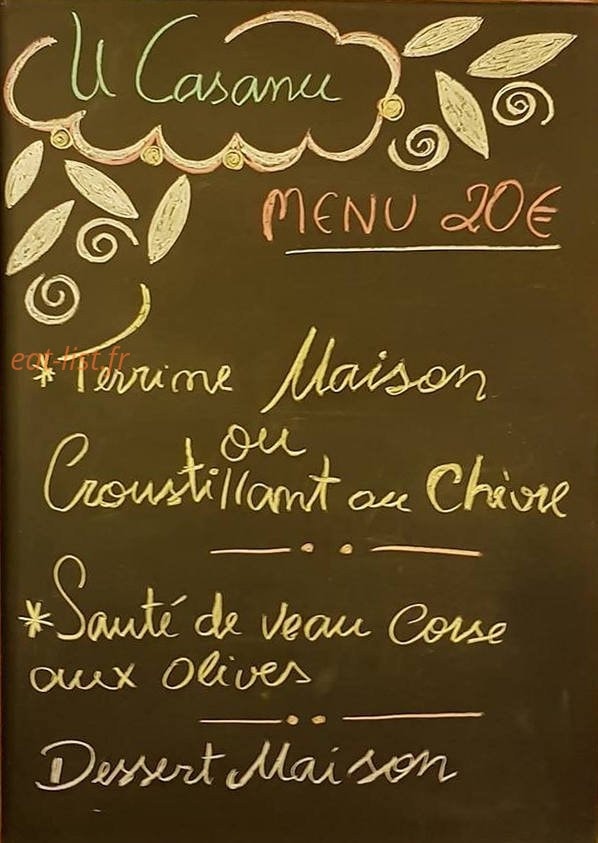 U Casanu
MENU 20€
eat-list.fr
*Terrine Maison
ou
Croustillant au Chèvre
*Sauté de veau Corse
aux olives
Dessert Maison